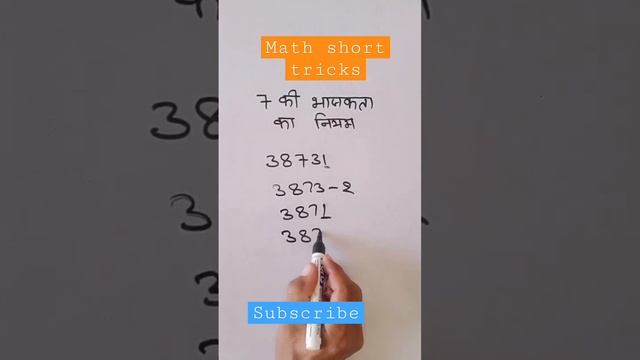 Math short
tricks
7 की भाजकता
का नियम
38731
3873-2
3871
387
Subscribe